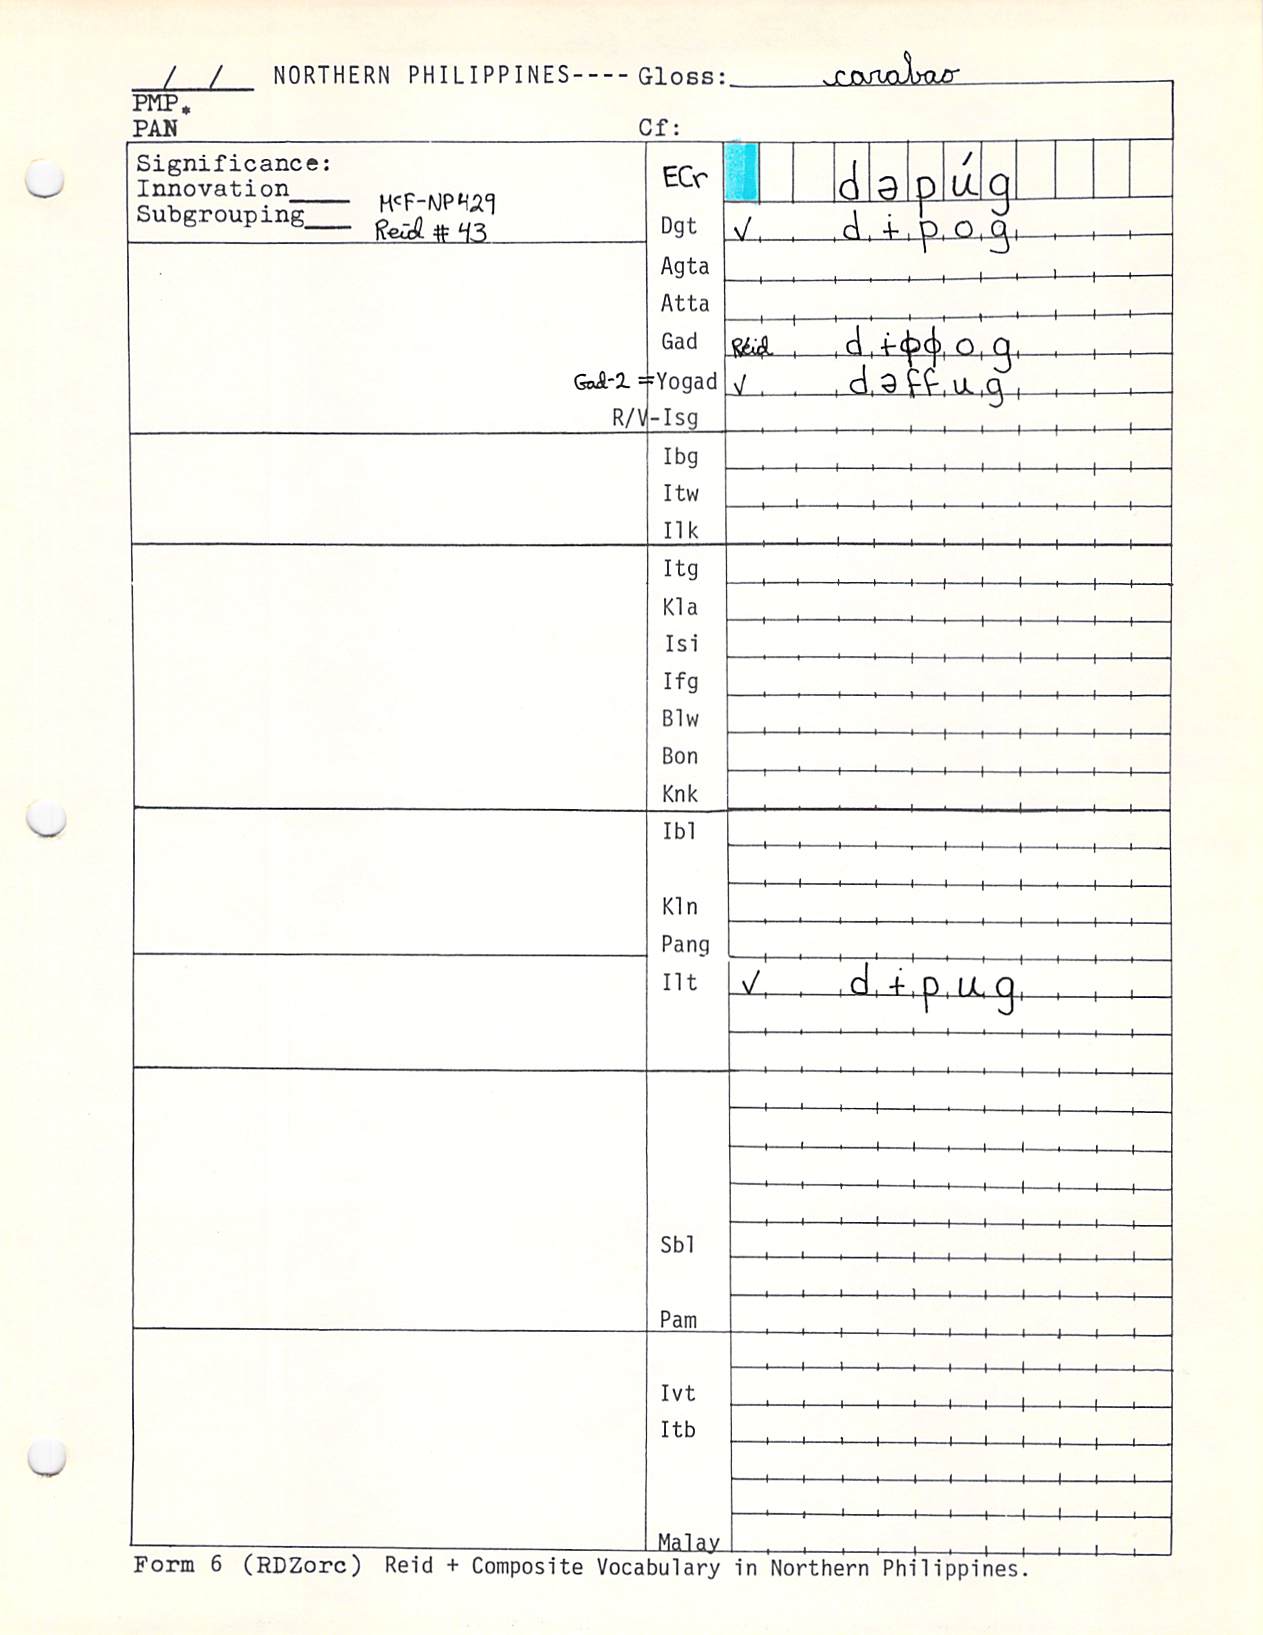 / / NORTHERN PHILIPPINES---- Gloss: carabao
PMP*
PAN Cf:
Significance:
Innovation____ McF-NP429
Subgrouping____ Reid # 43
ECr dəpúg
Dgt ✓ dɨpog
Agta
Atta
Gad Reid dɨɸɸog
Gad-2 = Yogad ✓ dəffug
R/V-Isg
Ibg
Itw
Ilk
Itg
Kla
Isi
Ifg
Blw
Bon
Knk
Ibl
Kln
Pang
Ilt ✓ dɨpug
Sbl
Pam
Ivt
Itb
Malay
Form 6 (RDZorc) Reid + Composite Vocabulary in Northern Philippines.